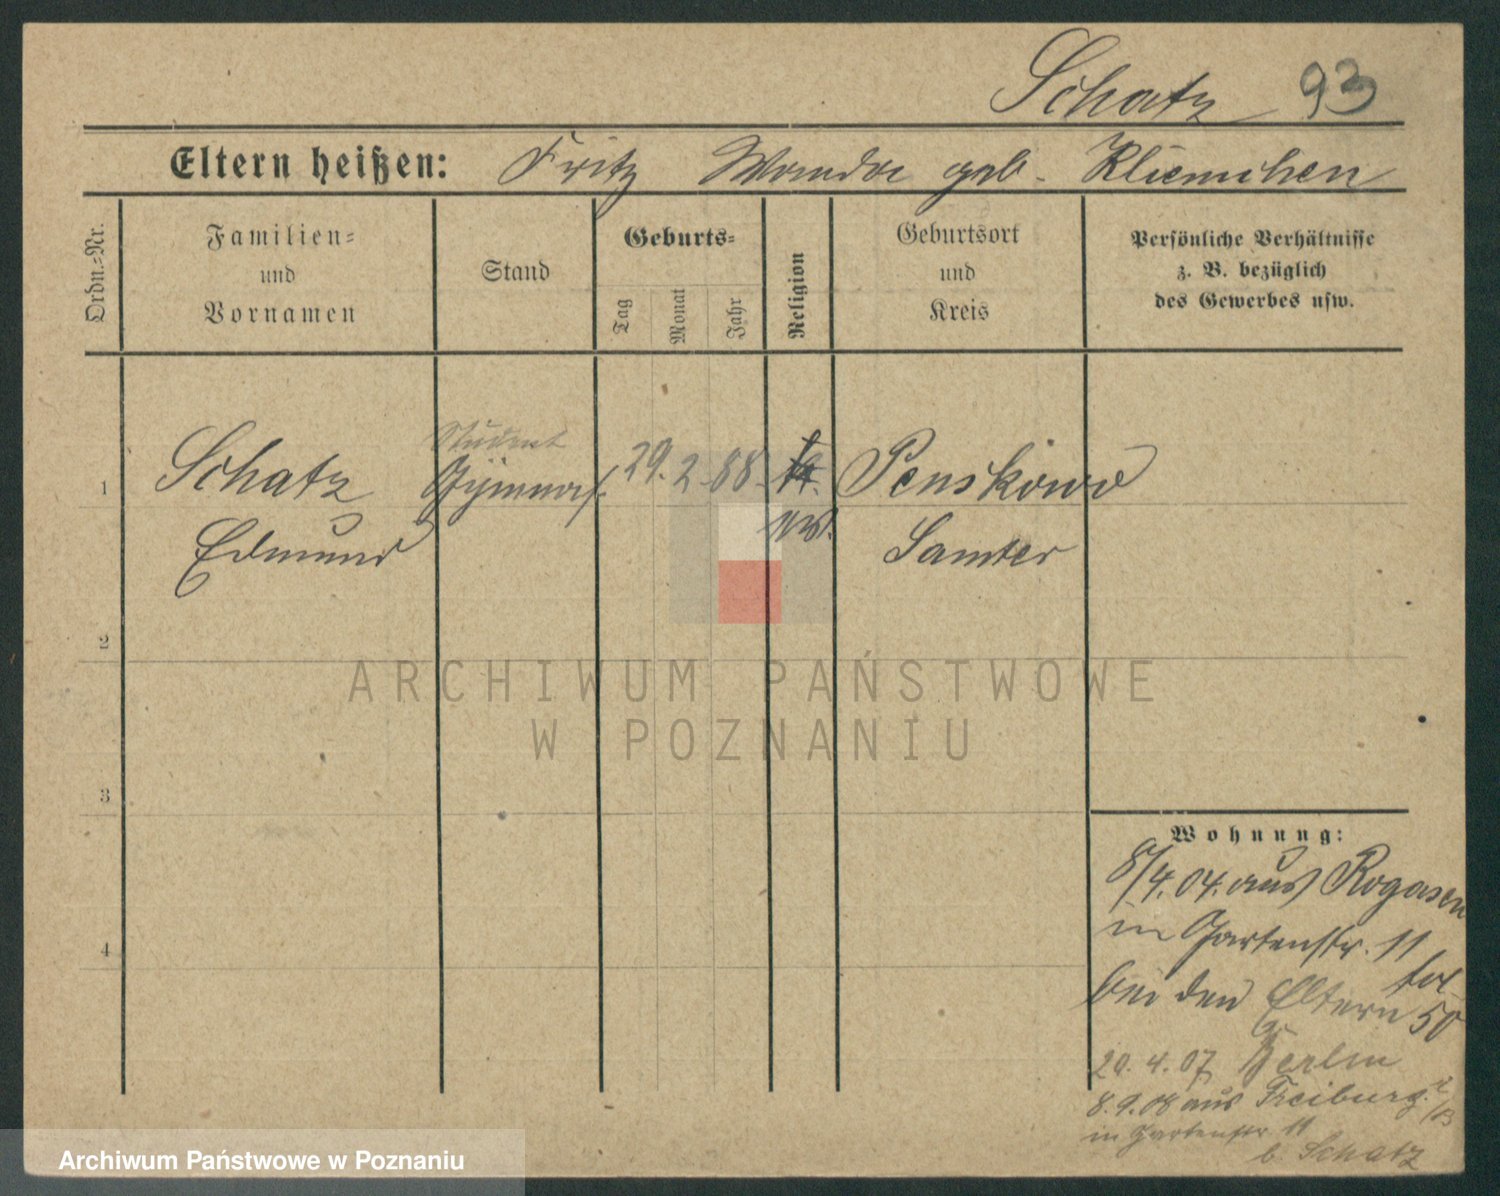 Schatz 93
Eltern heißen: Fritz Wanda geb. Kliemchen
Ordn.=Nr.
Familien=
und
Vornamen
Stand
Geburts=
Tag
Monat
Jahr
Religion
Geburtsort
und
Kreis
Persönliche Verhältnisse
z. B. bezüglich
des Gewerbes usw.
Student
1 Schatz Gymnas. 29. 2. 88. Penskowo
Edmund ev. Samter
2
3
4
ARCHIWUM PAŃSTWOWE
W POZNANIU
Wohnung:
8/4.04. aus Rogasen
in Gartenstr. 11
bei den Eltern 50
20. 4. 07 Berlin
8.9.08 aus Freiburg
in Gartenstr 11
b. Schatz
Archiwum Państwowe w Poznaniu